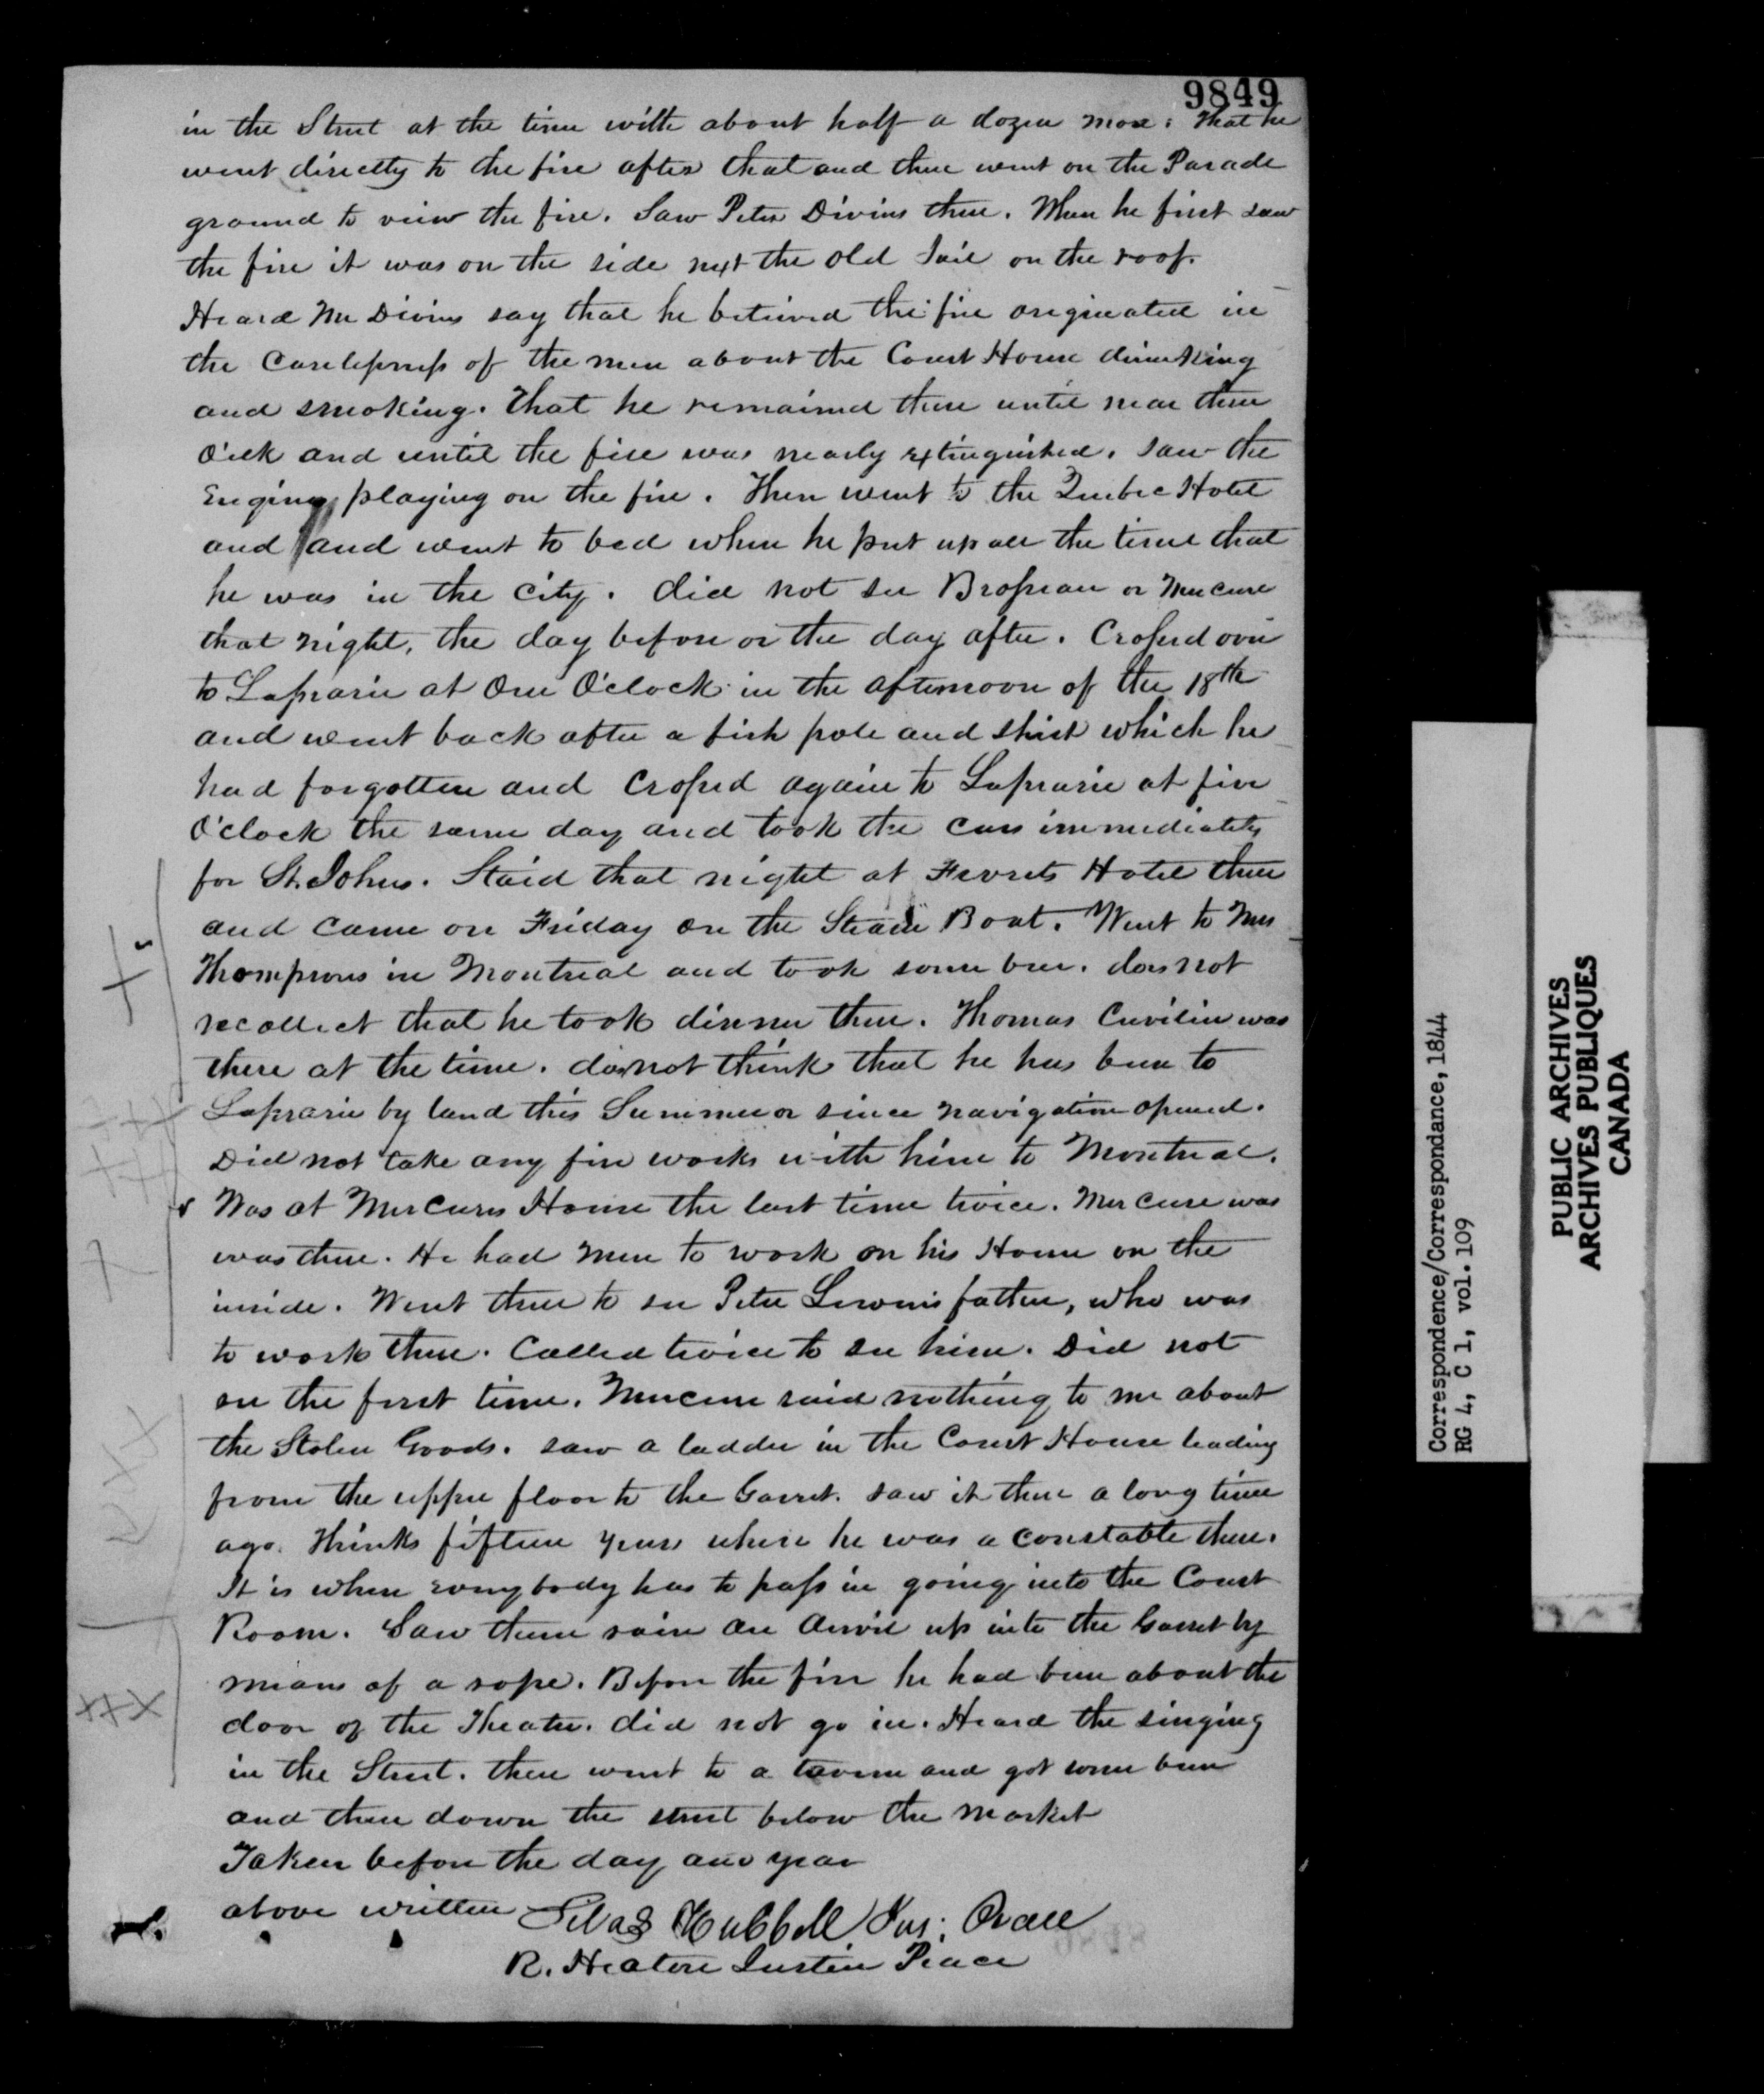 9849
in the Street at the time with about half a dozen more: that he
went directly to the fire after that and then went on the Parade
ground to view the fire. Saw Peter Divins there. When he first saw
the fire it was on the side next the old Jail on the roof.
Heard Mr Divins say that he believed the fire originated in
the Carelessness of the men about the Court House drinking
and smoking. That he remained there until near three
O'clk and until the fire was nearly extinguished. saw the
Engines playing on the fire. Then went to the Quebec Hotel
and and went to bed where he put up all the time that
he was in the City. did not see Brosseau or Mercure
that night, the day before or the day after. Crossed over
to Laprarie at One O'Clock in the afternoon of the 18th
and went back after a fish pole and shirt which he
had forgotten and Crossed again to Laprarie at five
O'Clock the same day and took the Cars immediately
for St. Johns. Staid that night at Hotel there
and came on Friday on the Steam Boat. Went to Mrs
Thompsons in Montreal and took some beer. does not
recollect that he took dinner there. Thomas was
there at the time. does not think that he has been to
Laprarie by land this Summer or since navigation opened.
Did not take any fire works with him to Montreal.
Was at Mercures House the last time twice. Mercure was
was there. He had men to work on his House on the
inside. Went there to see Peter father, who was
to work there. Called twice to see him. Did not
see the first time. Mercure said nothing to me about
the Stolen Goods. saw a ladder in the Court House leading
from the upper floor to the Garret. saw it there a long time
ago. Thinks fifteen years when he was a constable there.
It is where everybody has to pass in going into the Court
Room. Saw them raise an Anvil up into the Garret by
means of a rope. Before the fire he had been about the
door of the Theatre. did not go in. Heard the singing
in the Street. then went to a tavern and got some beer
and then down the street below the Market
Taken before the day and year
above written Silas Hubbell Jus: Peace
R. Heaton Justice Peace
Correspondence/Correspondance, 1844
RG 4, C 1, vol. 109
PUBLIC ARCHIVES
ARCHIVES PUBLIQUES
CANADA